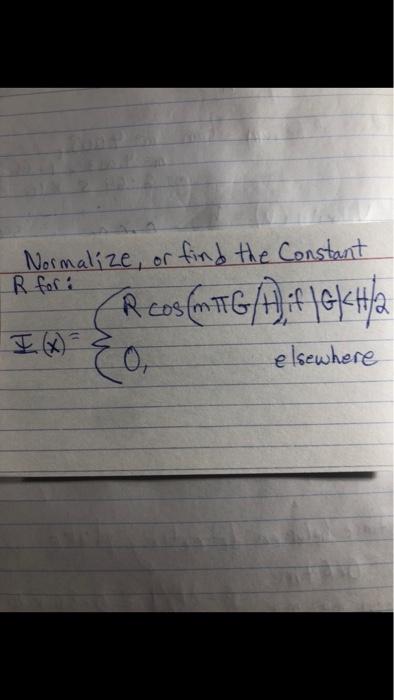 Normalize, or find the Constant
R for:
Ψ(x) = { R cos(mπG/H), if |G|<H/2
0, elsewhere